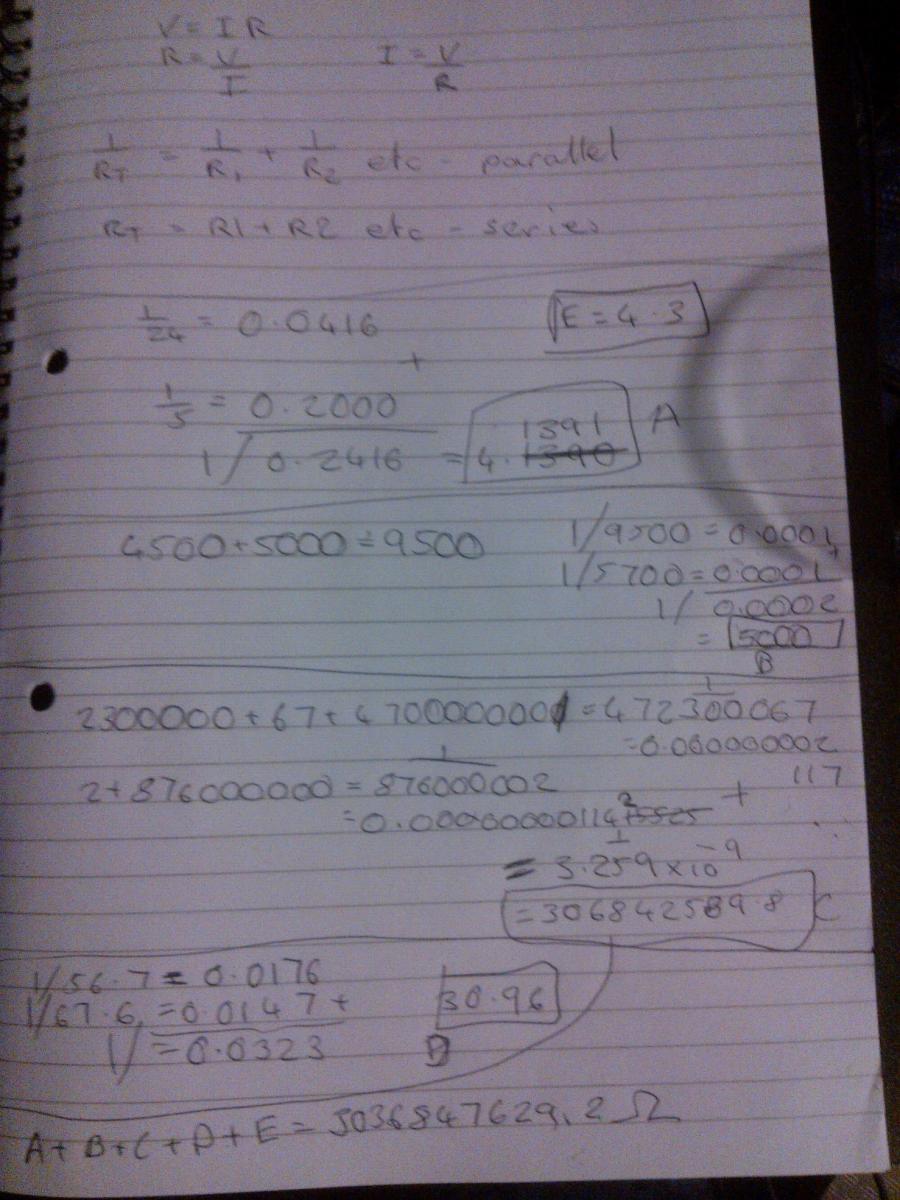 V = I R
R = V/I I = V/R
1/RT = 1/R1 + 1/R2 etc - parallel
RT = R1 + R2 etc - series
1/24 = 0.0416 E = 4.3
+
1/5 = 0.2000
1/ 0.2416 = 4.1391 A
4500+5000 = 9500 1/9500 = 0.0001 +
1/5700 = 0.0001
1/ 0.0002
= 5000
B
2300000 + 67 + 470000000 = 1/472300067
=0.000000002
117
2+876000000 = 1/876000002 +
=0.000000001142
= 1/3.259 x 10^-9
= 306842589.8 C
1/56.7 = 0.0176
1/67.6 = 0.0147 + 30.96
1/ = 0.0323 D
A + B + C + D + E = 3036847629.2 Ω